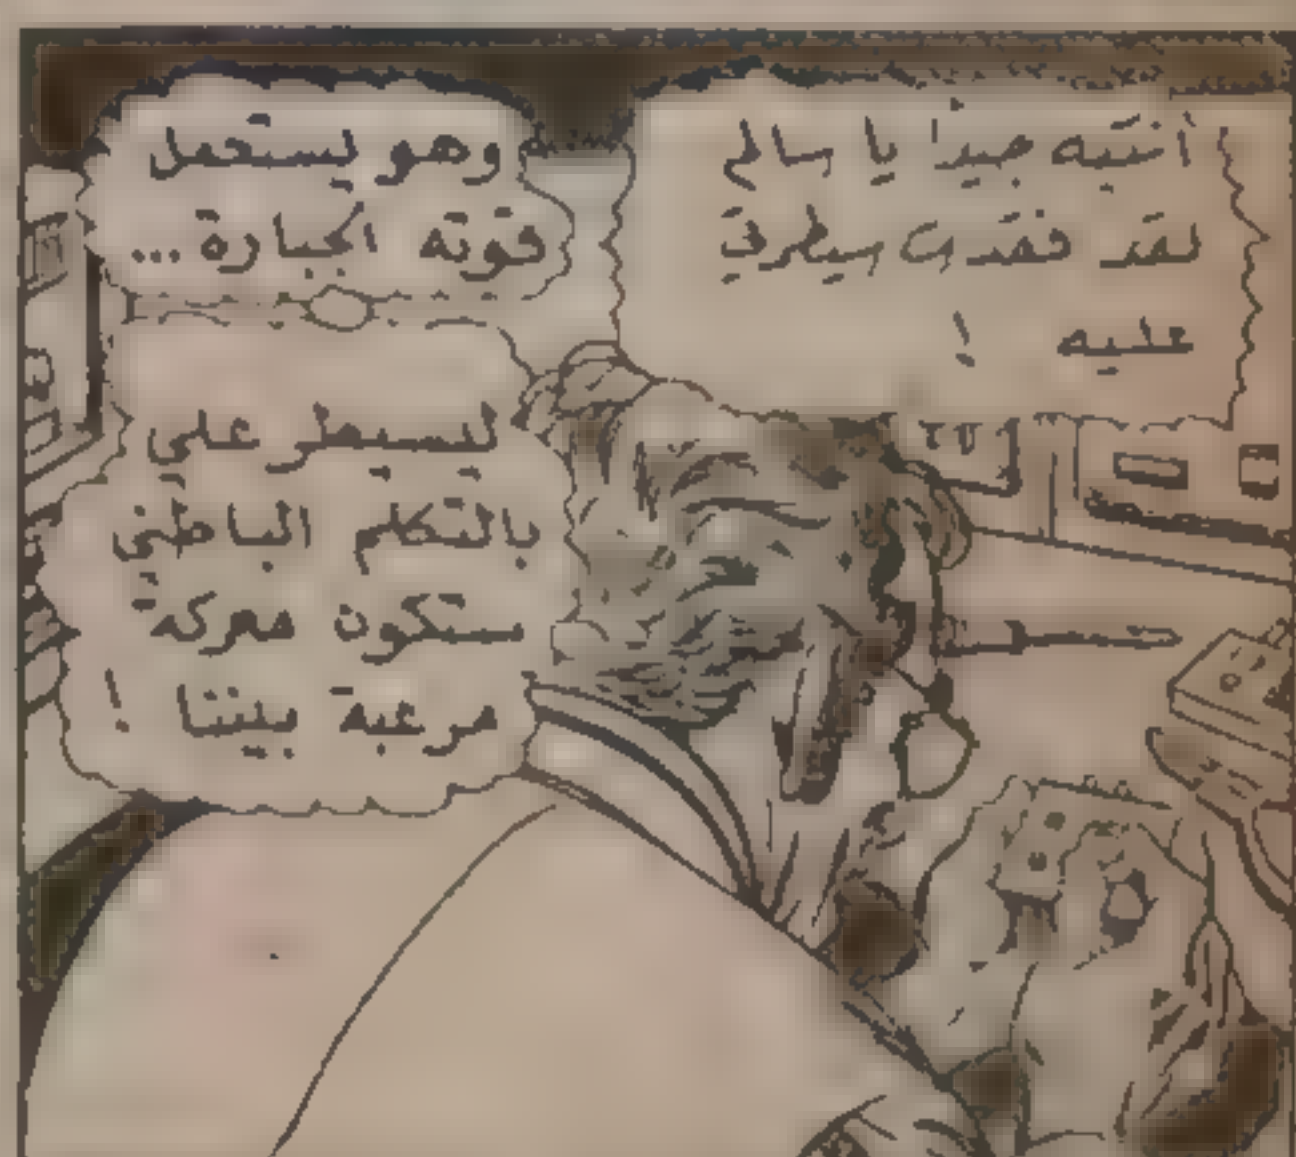 أنتبه جيداً يا سالم
لقد فقدت سيطرتي
عليه !
وهو يستعمل
قوته الجبارة ...
ليسيطر علي
بالتكلم الباطني
ستكون معركة
مرعبة بيننا !